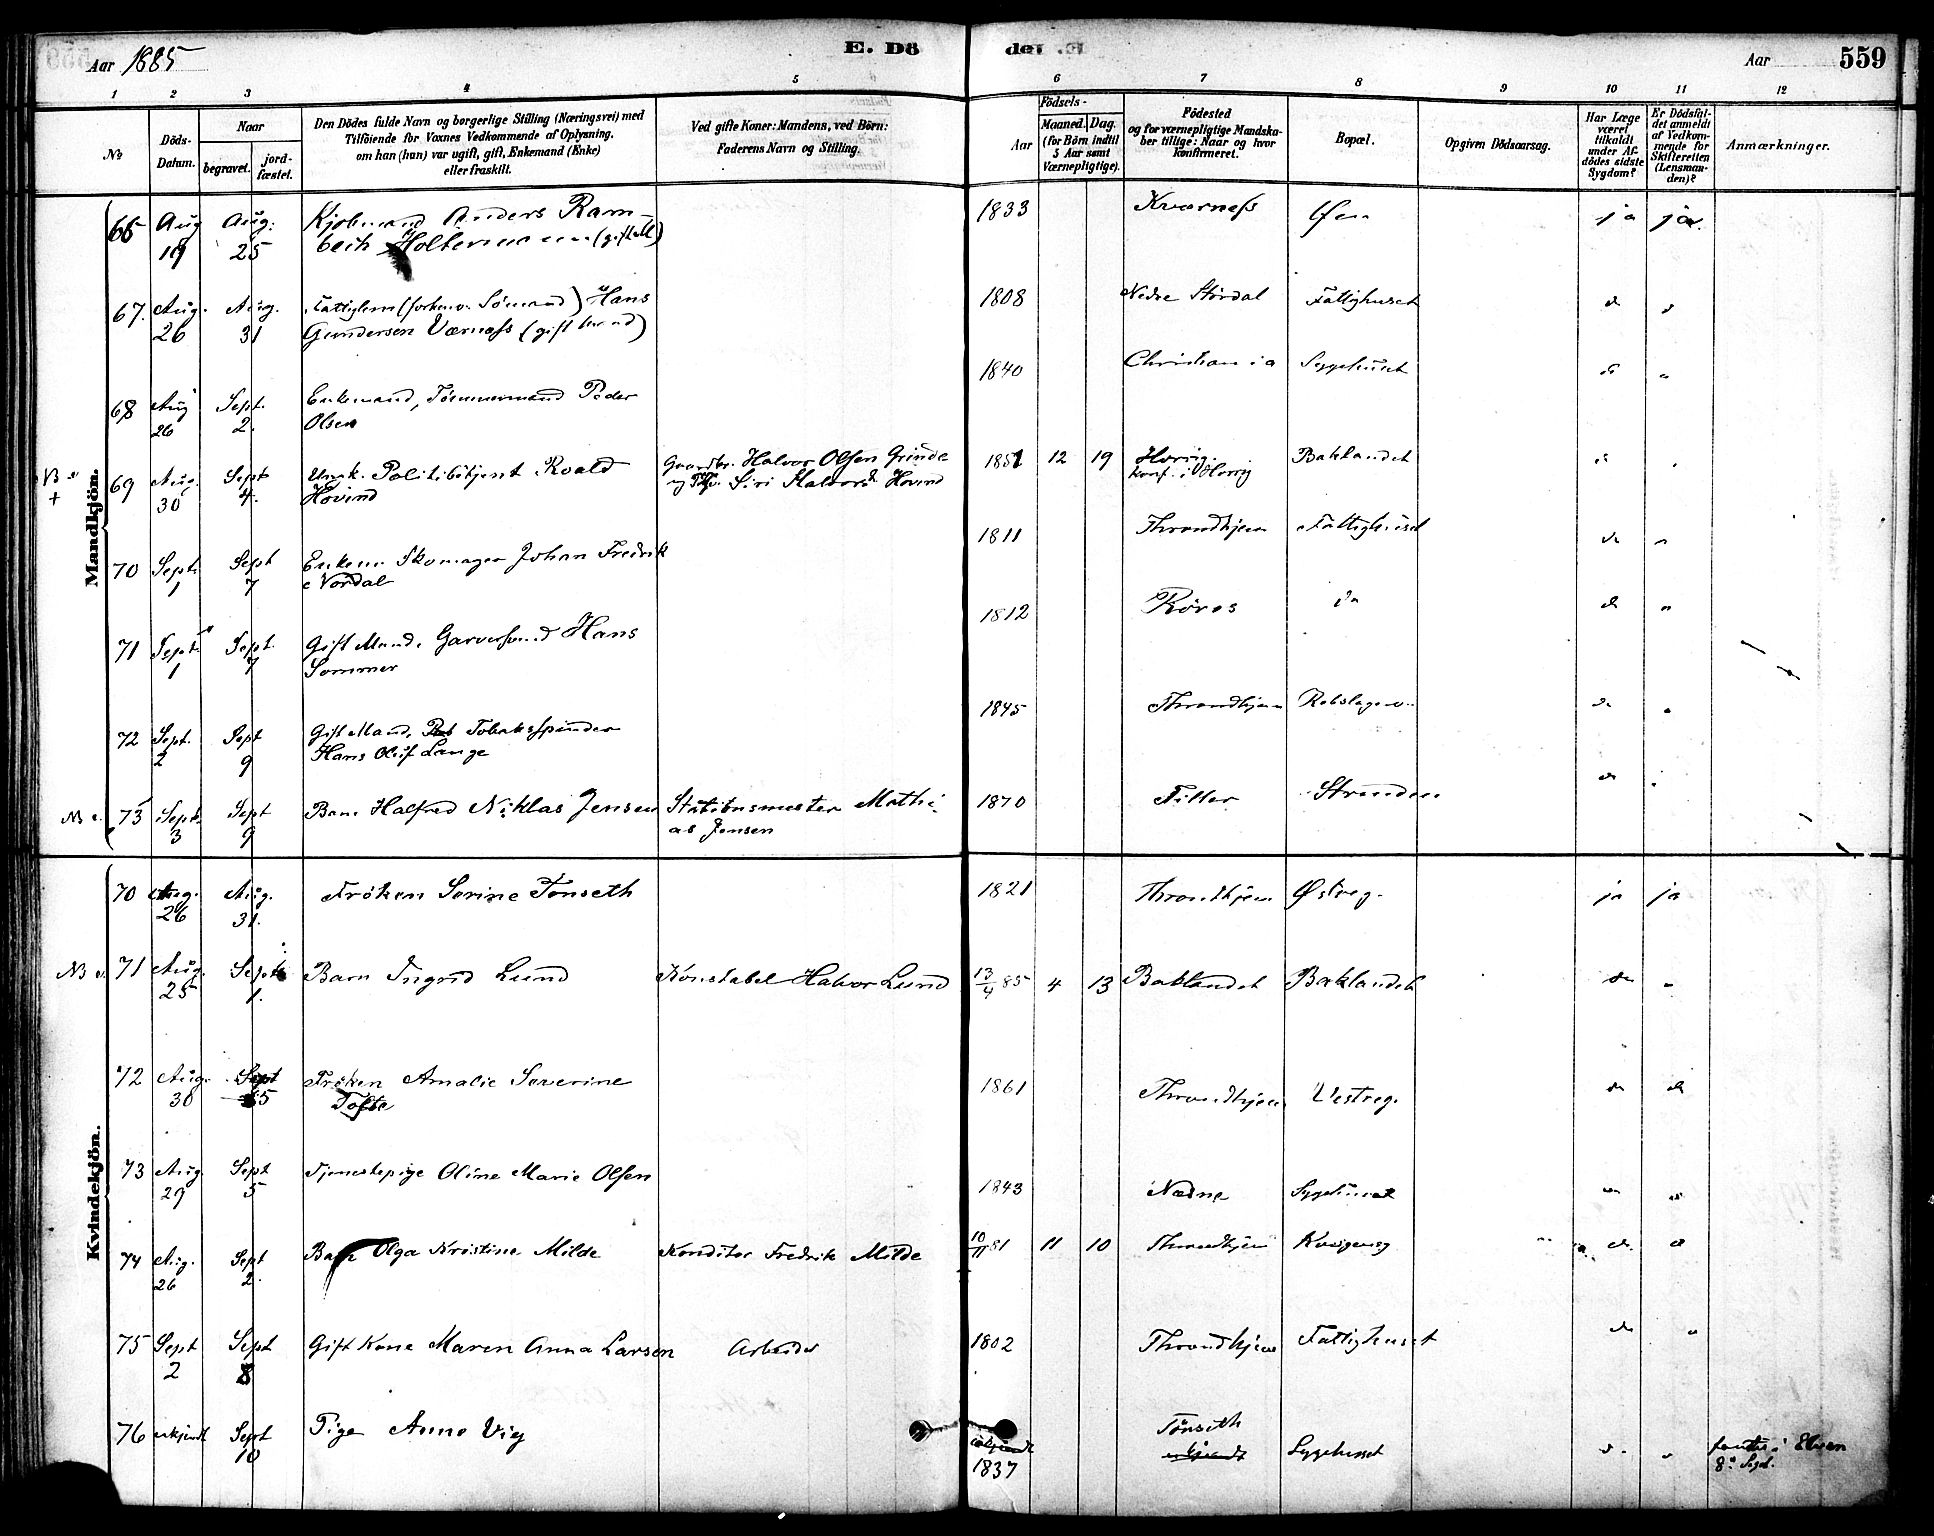 Aar 1885
E. Dö
der. E.
Aar
559
1 2 3 4 5 6 7 8 9 10 11 12
No
Döds-
Datum.
Naar
begravet.
jord-
fæstet.
Den Dödes fulde Navn og borgerlige Stilling (Næringsvei) med
Tilföiende for Voxnes Vedkommende af Oplysning.
om han (hun) var ugift, gift, Enkemand (Enke)
eller fraskilt.
Ved gifte Koner: Mandens, ved Börn:
Faderens Navn og Stilling.
Födsels-
Aar
Maaned. Dag.
(for Börn indtil
5 Aar samt
Værnepligtige).
Födested
og for værnepligtige Mandska-
ber tillige: Naar og hvor
konfirmeret.
Bopæl.
Opgiven Dödsaarsag.
Har Læge
været
tilkaldt
under Af-
dödes sidste
Sygdom?
Er Dödsfal-
det anmeldt
af Vedkom-
mende for
Skifteretten
(Lensman-
den)?
Anmærkninger.
Mandkjön.
66 Aug Aug. Kjøbmand Anders Ram- 1833 Kværness ja ja.
19 25 bech Holtermann (gift M)
67. Aug. Aug. Fattiglem (forhenv. Sömand) Hans 1808 Nedre Stördal Fattighuset
26 31 Gundersen Værness (gift mand)
68 Aug Sept. Enkemand, Tömmermand Peder 1840 Christiania Sygehuset
26 2. Olsen
69 Aug. Sept Ungk. Politibetjent Roald Gaardbr. Halvor Olsen Grinde 1851 12 19 Horrig. Baklandet
30 4. Hovind Siri Halvord. Hovind Konf. i Horrig
70 Sept. Sept Enkem. Skomager Johan Fredrik 1811 Throndhjem Fattighuset
1 7 Nordal
71 Sept. Sept. Gift Mand, Garversvend Hans 1812 Röros do
1 7 Sommer
72 Sept. Sept Gift Mand, Tobaksspinder 1845 Throndhjem Rebslagerv.
2 9 Hans Oluf Lange
NB 73 Sept. Sept Barn Halfred Niklas Jensen Stationsmester Mathi- 1870 Tiller Stranden
3 9 as Jensen
Kvindekjön.
70 Aug. Aug. Fröken Serine Tonseth 1821 Throndhjem Østreg. ja ja
26 31.
NB 71 Aug. Sept Barn Ingrid Lund Konstabel Halvor Lund 13/4 85 4 13 Baklandet Baklandet do
25 1.
72 Aug. Sept Fröken Amalie Severine 1861 Throndhjem Vestreg.
30 5 Tofte
73 Aug. Sept Tjenestepige Oline Marie Olsen 1843 Sygehuset
29 5
74 Aug. Sept Barn Olga Kristine Milde Konditor Fredrik Milde 10/11 81 11 10 Throndhjem
26 2.
75 Sept Sept Gift Kone Maren Anna Larsen Arbeider 1802 Throndhjem Fattighuset
2 8
76 ukjendt Sept Pige Anne Vig ukjendt Tönseth
10 1837 ukjendt Sygehuset i Elven
8de Sept.